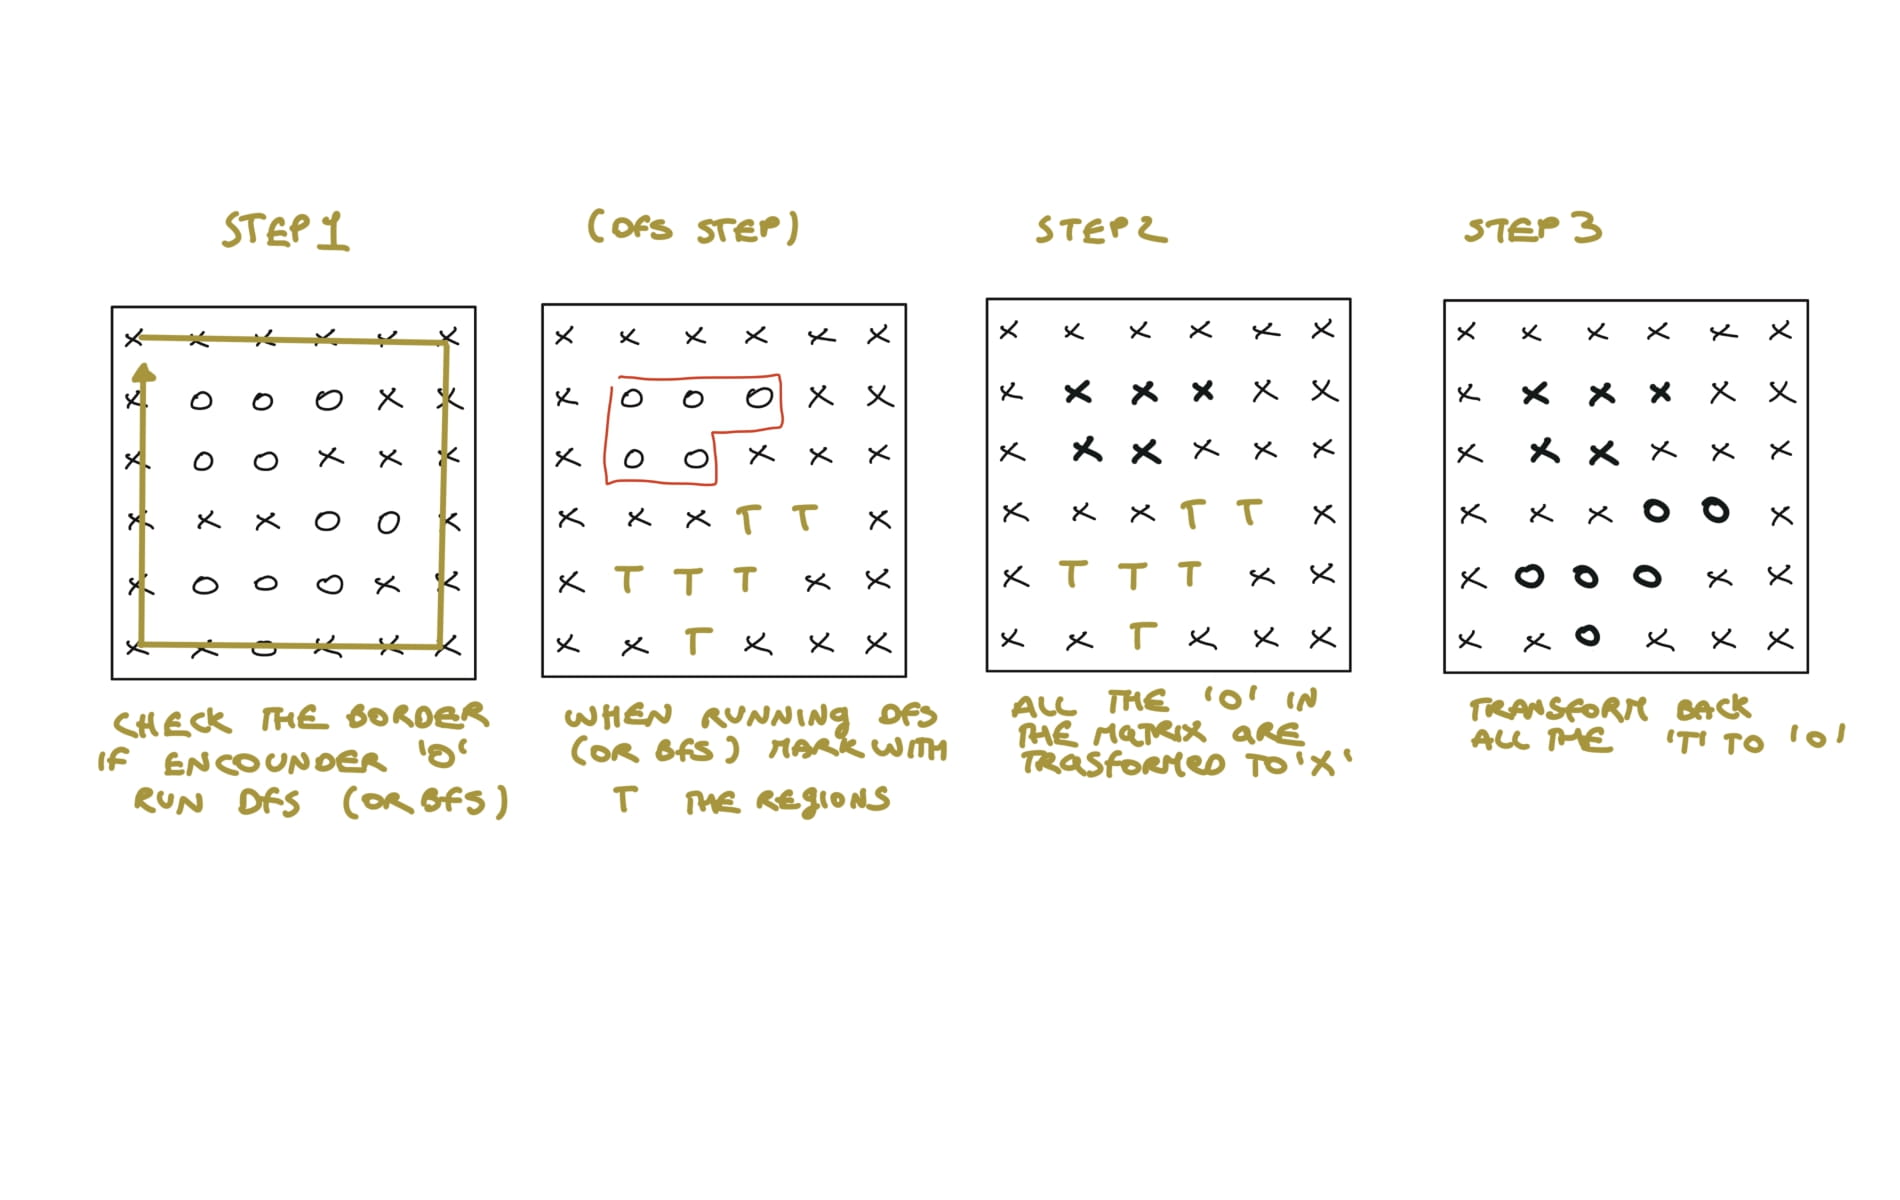 STEP 1
X X X X X X
X O O O X X
X O O X X X
X X X O O X
X O O O X X
X X O X X X
CHECK THE BORDER
IF ENCOUNDER 'O'
RUN DFS (OR BFS)
(DFS STEP)
X X X X X X
X O O O X X
X O O X X X
X X X T T X
X T T T X X
X X T X X X
WHEN RUNNING DFS
(OR BFS) MARK WITH
T THE REGIONS
STEP 2
X X X X X X
X X X X X X
X X X X X X
X X X T T X
X T T T X X
X X T X X X
ALL THE 'O' IN
THE MATRIX ARE
TRASFORMED TO 'X'
STEP 3
X X X X X X
X X X X X X
X X X X X X
X X X O O X
X O O O X X
X X O X X X
TRANSFORM BACK
ALL THE 'T' TO 'O'